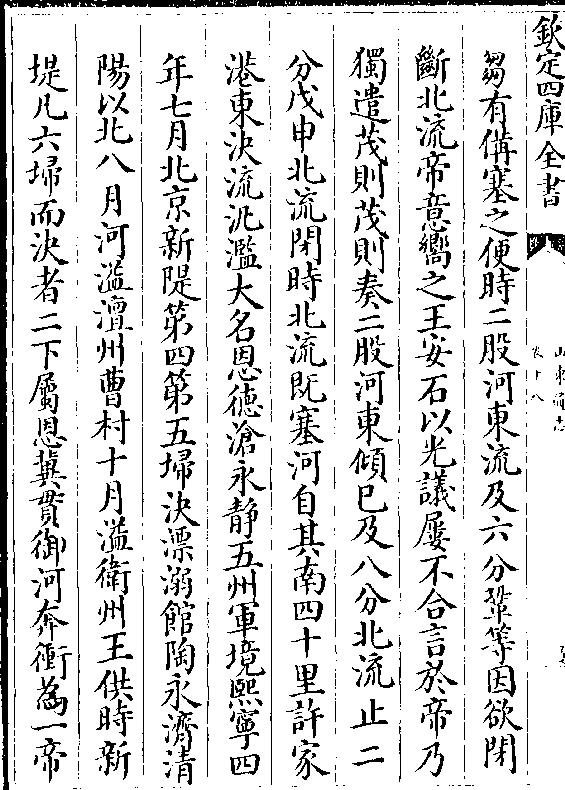 欽定四庫全書
山東通志
卷十八
芻有備塞之便時二股河東流及六分鞏等因欲閉
斷北流帝意嚮之王安石以光議屢不合言於帝乃
獨遣茂則茂則奏二股河東傾已及八分北流止二
分戊申北流閉時北流既塞河自其南四十里許家
港東決流汎濫大名恩德滄永静五州軍境熙寧四
年七月北京新隄第四第五埽決漂溺館陶永濟清
陽以北八月河溢澶州曹村十月溢衛州王供時新
堤凡六埽而決者二下屬恩冀貫御河奔衝為一帝